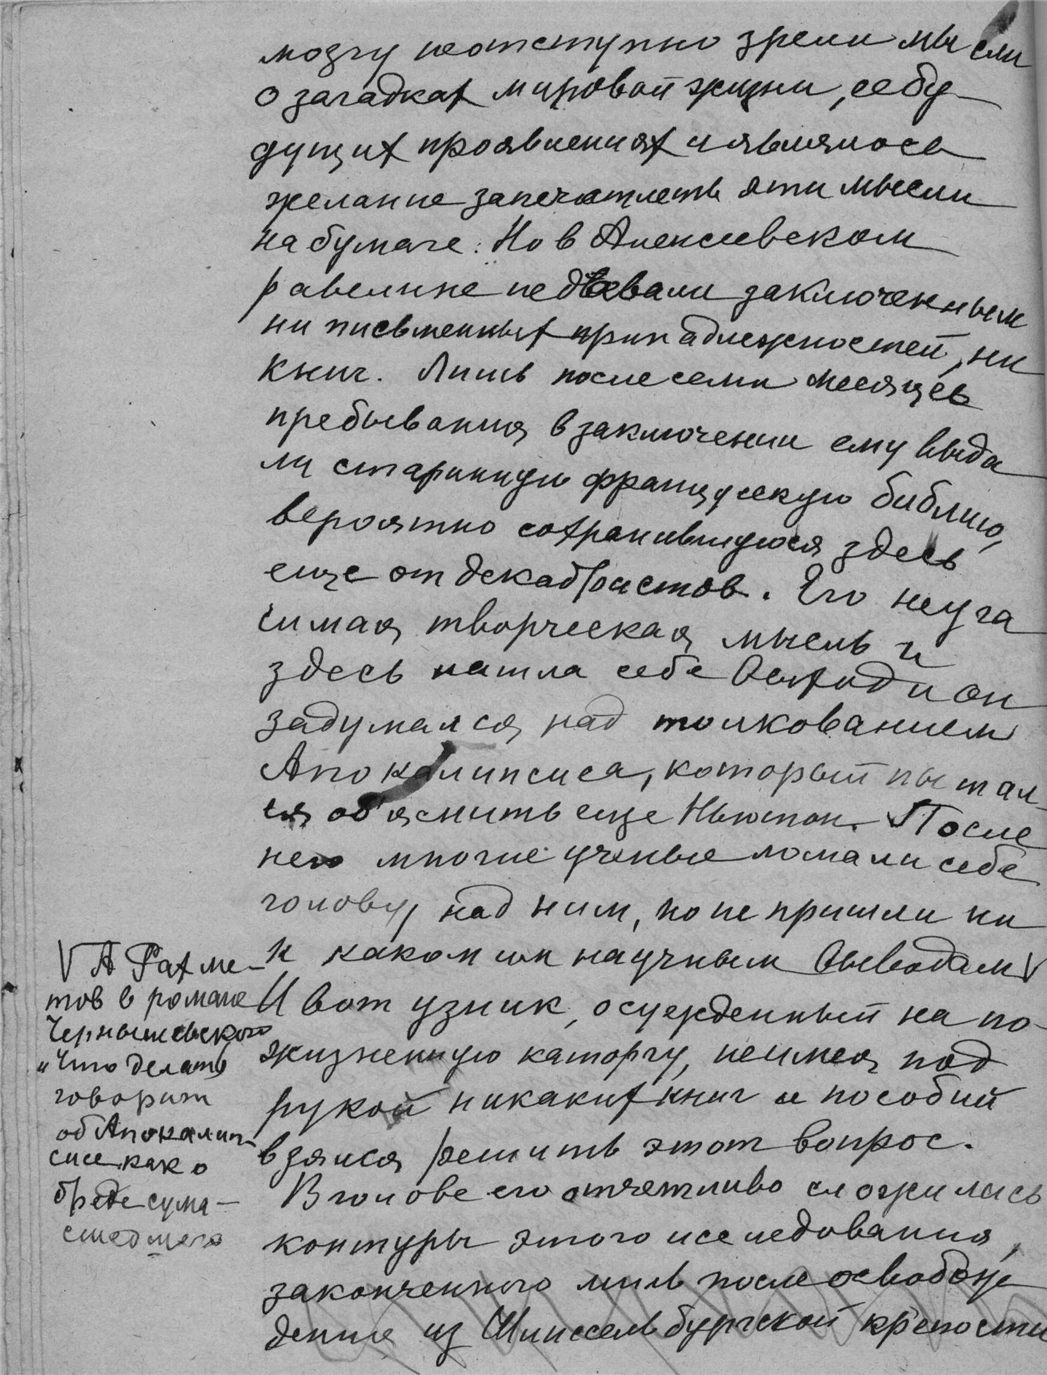 мозгу неотступно зрели мысли
о загадках мировой жизни, ее бу
дущих проявлениях и являлось
желание запечатлеть эти мысли
на бумаге. Но в Алексеевском
равелине не давали заключенным
ни письменных принадлежностей, ни
книг. Лишь после семи месяцев
пребывания в заключении ему выда
ли старинную французскую библию,
вероятно сохранившуюся здесь
еще от декабристов. Его неуга
симая творческая мысль и
здесь нашла себе выход и он
задумался над толкованием
Апокалипсиса, который пытал-
ся об'яснить еще Ньютон. После
него многие ученые ломали себе
голову над ним, но не пришли ни
к каким научным выводам V
И вот узник, осужденный на по-
жизненную каторгу, не имея под
рукой никаких книг и пособий
взялся решить этот вопрос.
В голове его отчетливо сложились
контуры этого исследования,
законченного лишь после освобож
дения из Шлиссельбургской крепости
V А Рахме-
тов в романе
Чернышевского
"Что делать
говорит
об Апокалип-
сисе как о
бреде сума-
сшедшего